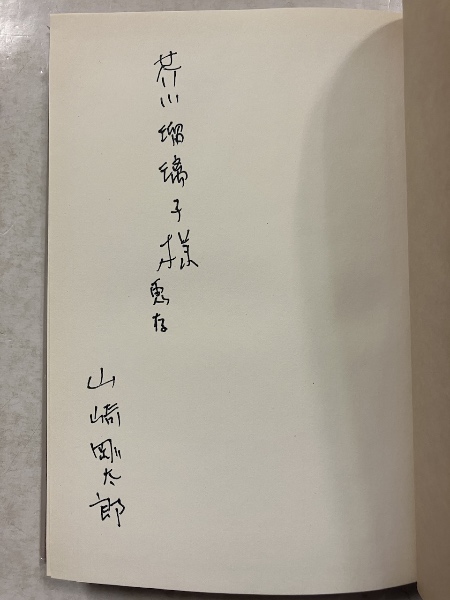 芥川瑠璃子様恵存
山崎剛太郎